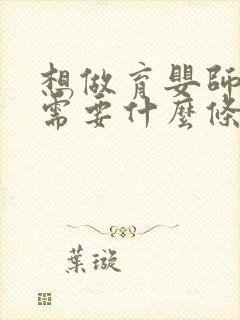 想做育嬰師
需要什麼條
葉璇